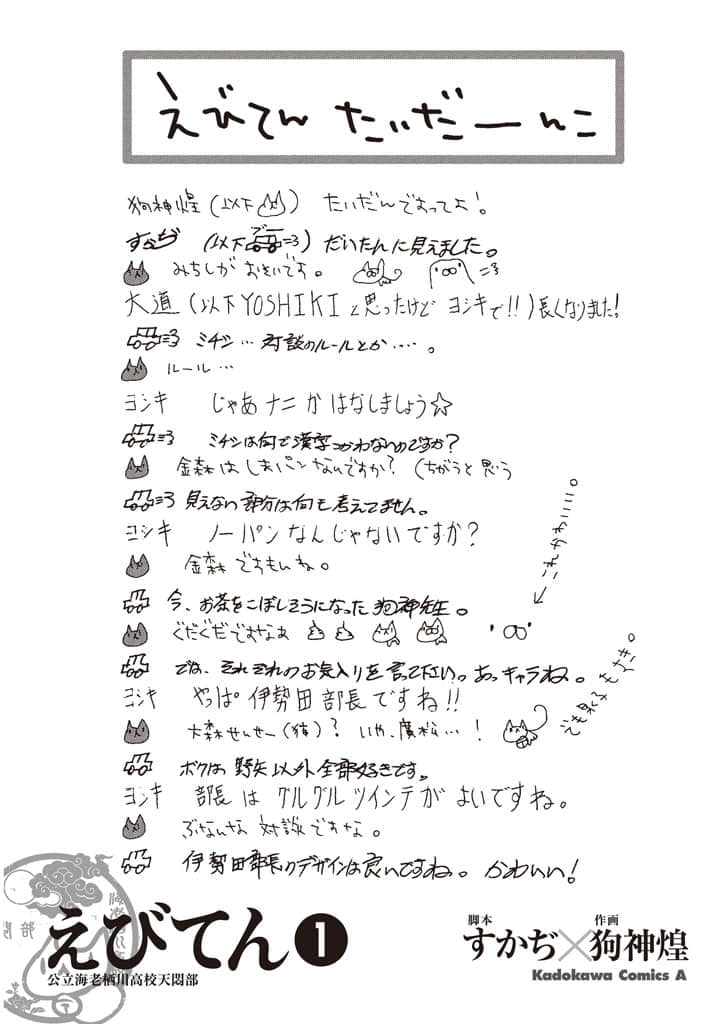 えびてん たいだーんこ
狗神煌(以下 ) たいだんですってよ!。
すかぢ (以下 )だいたんに見えました。
みちしがおそいです。
大道(以下YOSHIKIと思ったけど ヨシキで!!)長くなりました!
ミチシ…対談のルールとか‥‥。
ルール…
ヨシキ じゃあナニかはなしましょう☆
ミチシは何で漢字つかわないのですか?
金森はしまパンなんですか?(ちがうと思う
見えない部分は何も考えてません。
ヨシキ ノーパンなんじゃないですか?
金森ですもんね。
これかわいい。
今、お茶をこぼしそうになった狗神先生。
ぐだぐだですなあ
では、それぞれのお気入りを言って下さい。あっキャラね。
ヨシキ やっぱ伊勢田部長ですね!!
大森せんせー(猫)?いや、廣松…!
でも もすき。
ボクは野矢以外全部好きです。
ヨシキ 部長はグルグルツインテがよいですね。
ぶなんな対談ですな。
伊勢田部長のデザインは良いですね。かわいい!
部
えびてん 1
公立海老栖川高校天悶部
脚本 作画
すかぢ×狗神煌
Kadokawa Comics A